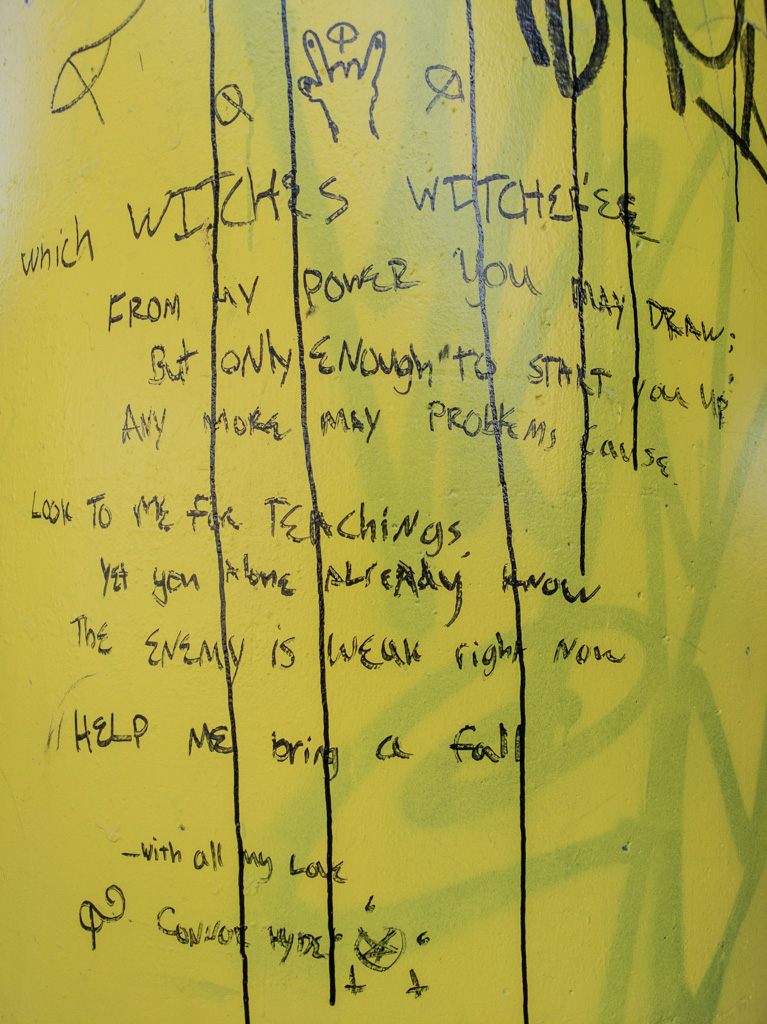 which WITCH'S WITCHEREE
FROM MY POWER YOU MAY DRAW;
But ONLY ENOUGH TO START you up
ANY MORE MAY PROBLEMS Cause.
LOOK TO ME FOR TEACHINGS,
Yet you Alone ALREADY KNOW
The ENEMY is WEAK right NOW
HELP ME bring a fall
-with all my Love
CONNOR HYDE